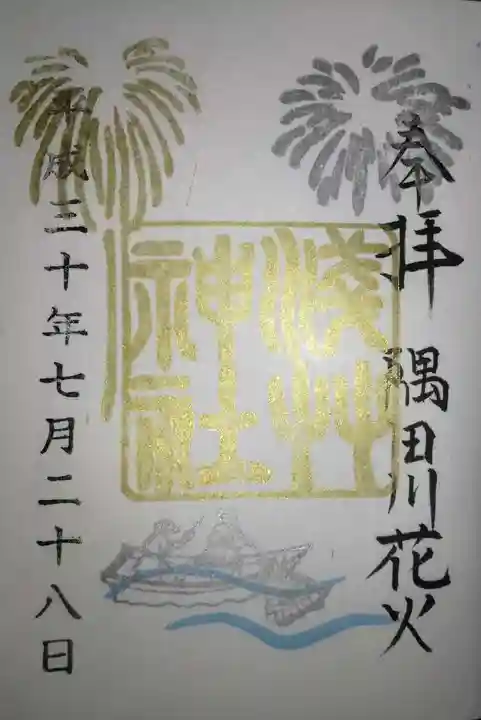 奉拝 隅田川花火
浅草
神社
平成三十年七月二十八日